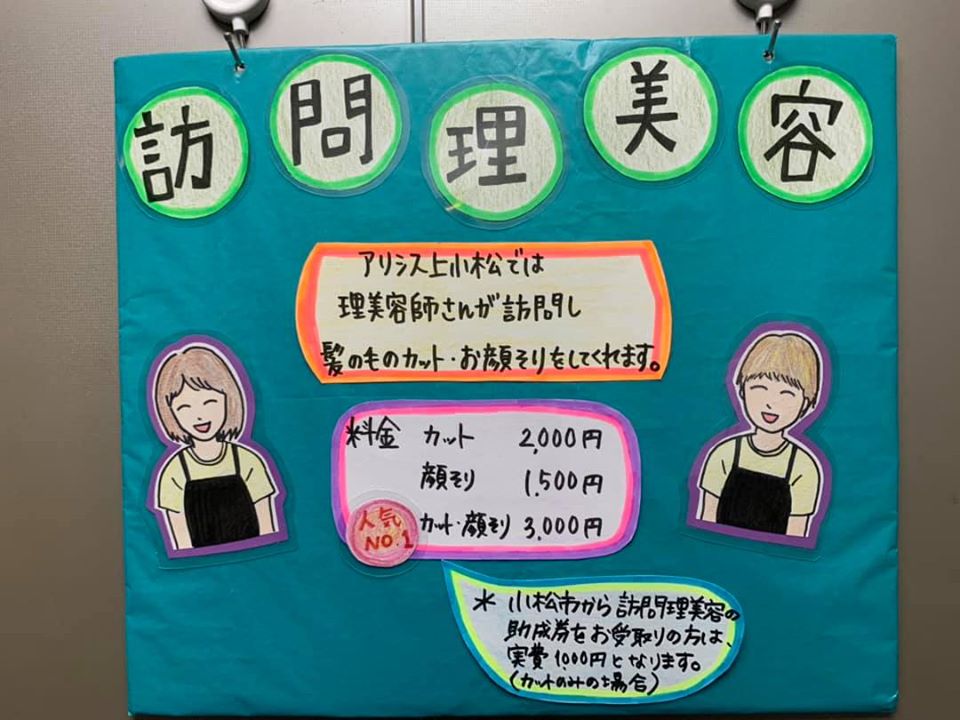 訪問理美容
アリシス上小松では
理美容師さんが訪問し
髪のものカット・お顔そりをしてくれます。
料金 カット 2,000円
顔そり 1,500円
人気 NO.1 カット・顔そり 3,000円
＊ 小松市から訪問理美容の
助成券をお受取りの方は、
実費1,000円となります。
(カットのみの場合)